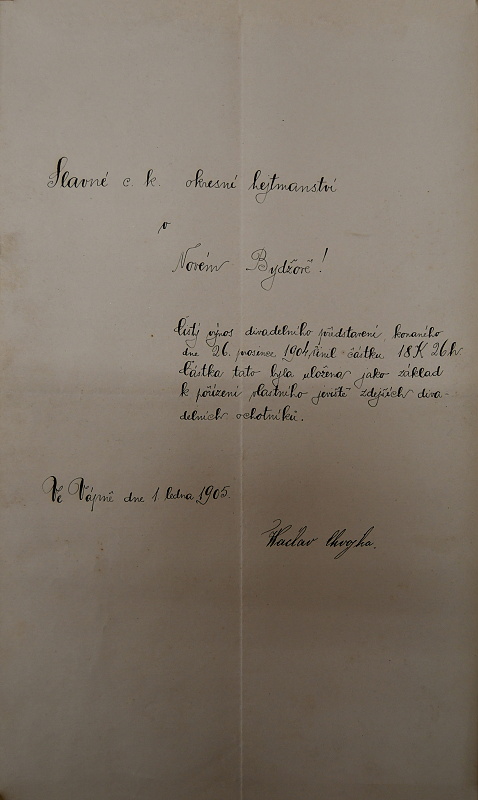 Slavné c. k. okresní hejtmanství
v
Novém Bydžově!
Čistý výnos divadelního představení, konaného
dne 26. prosince 1904, činil částku 18 K 26 h
Částka tato byla uložena jako základ
k pořízení vlastního jeviště zdejších diva-
delních ochotníků.
Ve Vápně dne 1 ledna 1905.
Václav